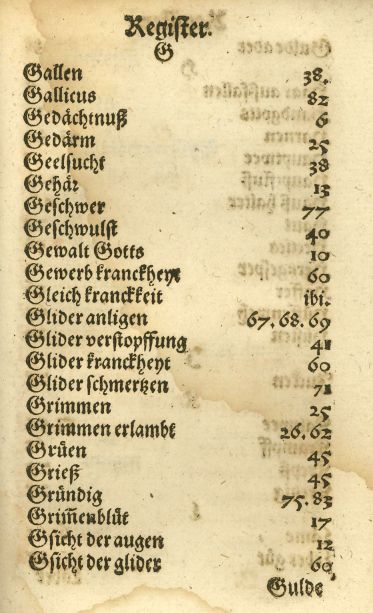 Register.
G
Gallen 38.
Gallicus 82
Gedächtnuß 6
Gedärm 25
Geelsucht 38
Gehär 13
Geschwer 77
Geschwulst 40
Gewalt Gotts 10
Gewerb kranckheyt 60
Gleich kranckkeit ibi.
Glider anligen 67.68.69
Glider verstopffung 41
Glider kranckheyt 60
Glider schmertzen 71
Grimmen 25
Grimmen erlambt 26.62
Grüen 45
Grieß 45
Gründig 75.83
Grim̃enblůt 17
Gsicht der augen 12
Gsicht der glider 60
Gulde